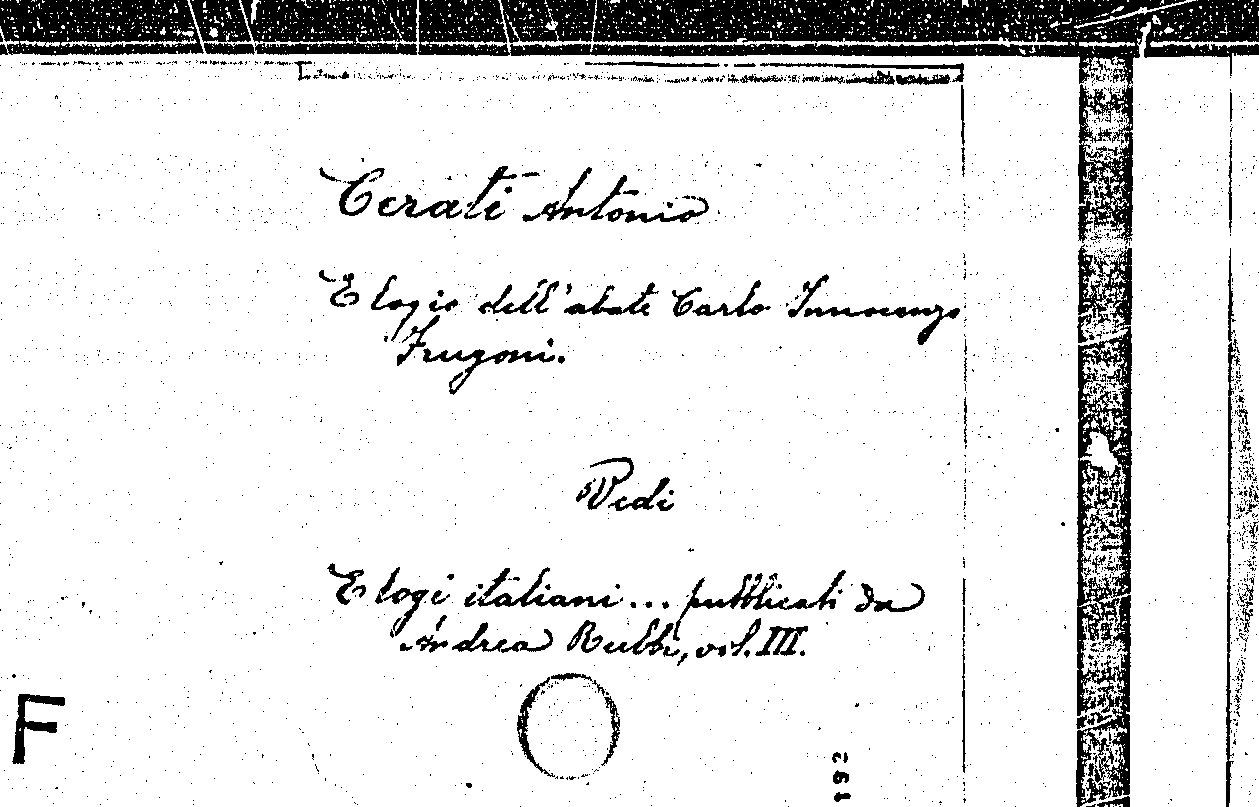 Cerati Antonio
Elogio dell'abate Carlo Innocenzo
Frugoni.
Vedi
Elogi italiani... pubblicati da
Andrea Rubbi, vol. III.
F
192